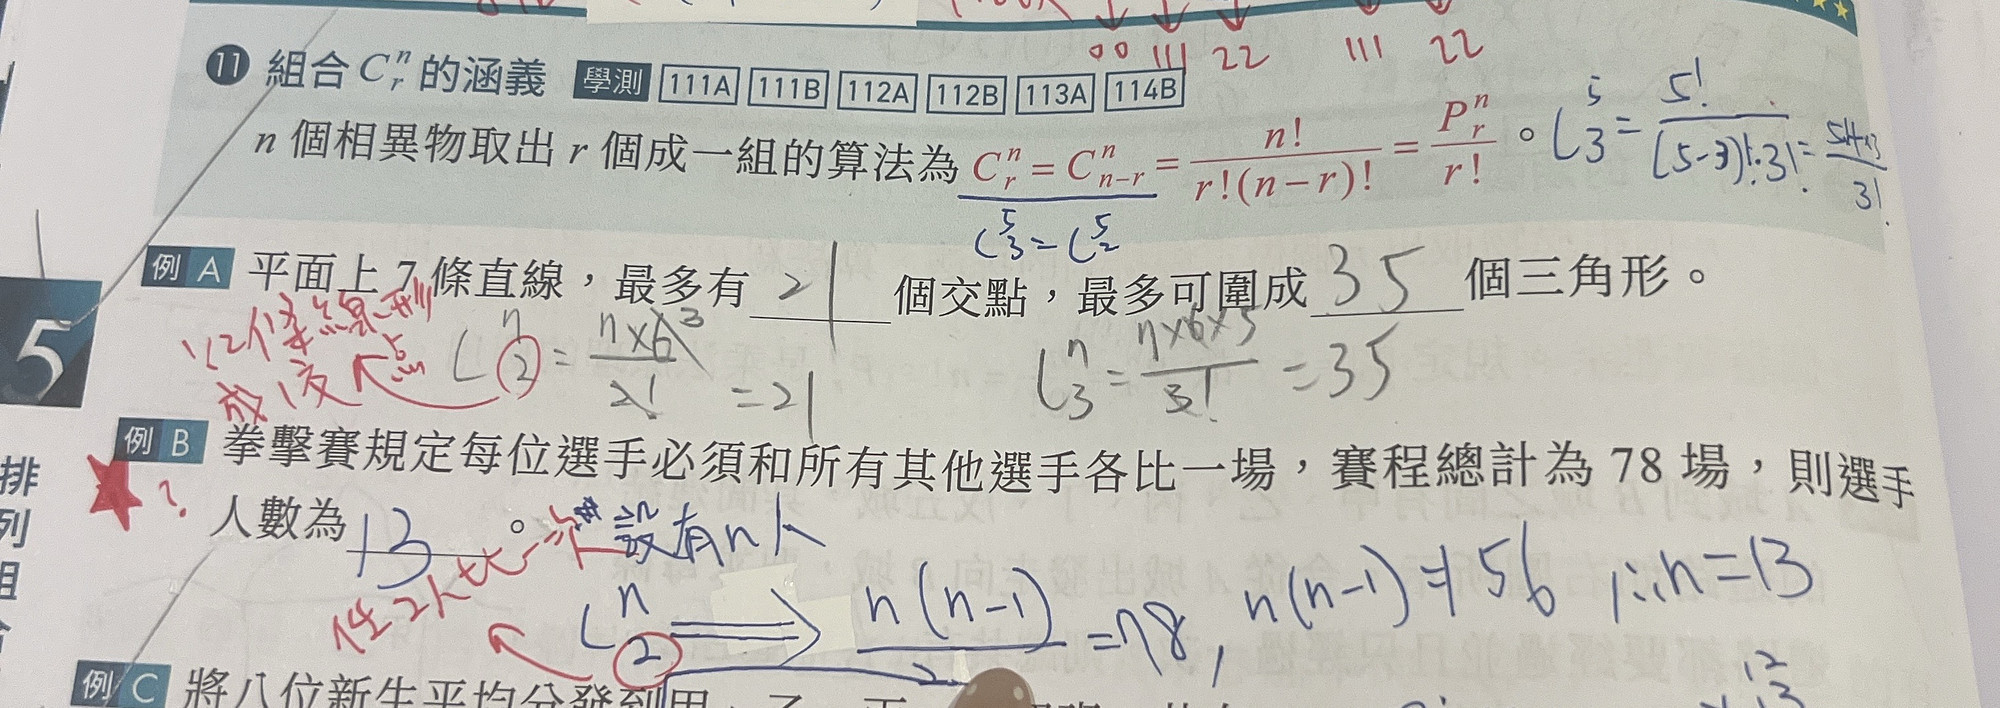 00 111 22 111 22
⓫ 組合 C^n_r 的涵義 學測 111A 111B 112A 112B 113A 114B
n 個相異物取出 r 個成一組的算法為 C^n_r = C^n_{n-r} = n!/r!(n-r)! = P^n_r/r! 。 C^5_3 = 5!/(5-3)!·3! = 5×4×3/3!
C^5_3 = C^5_2
例 A 平面上 7 條直線，最多有 21 個交點，最多可圍成 35 個三角形。
2條線形
成1交點 C^7_2 = 7×6/2! = 21 C^7_3 = 7×6×5/3! = 35
3
5
例 B 拳擊賽規定每位選手必須和所有其他選手各比一場，賽程總計為 78 場，則選手
? 人數為 13 。 設有n人
任2人比一
C^n_2 ⇒ n(n-1)/2 = 78, n(n-1)=156 ∴n=13
排
列
組
例 C 將八位新生平均分發到甲、乙、丙
12
13